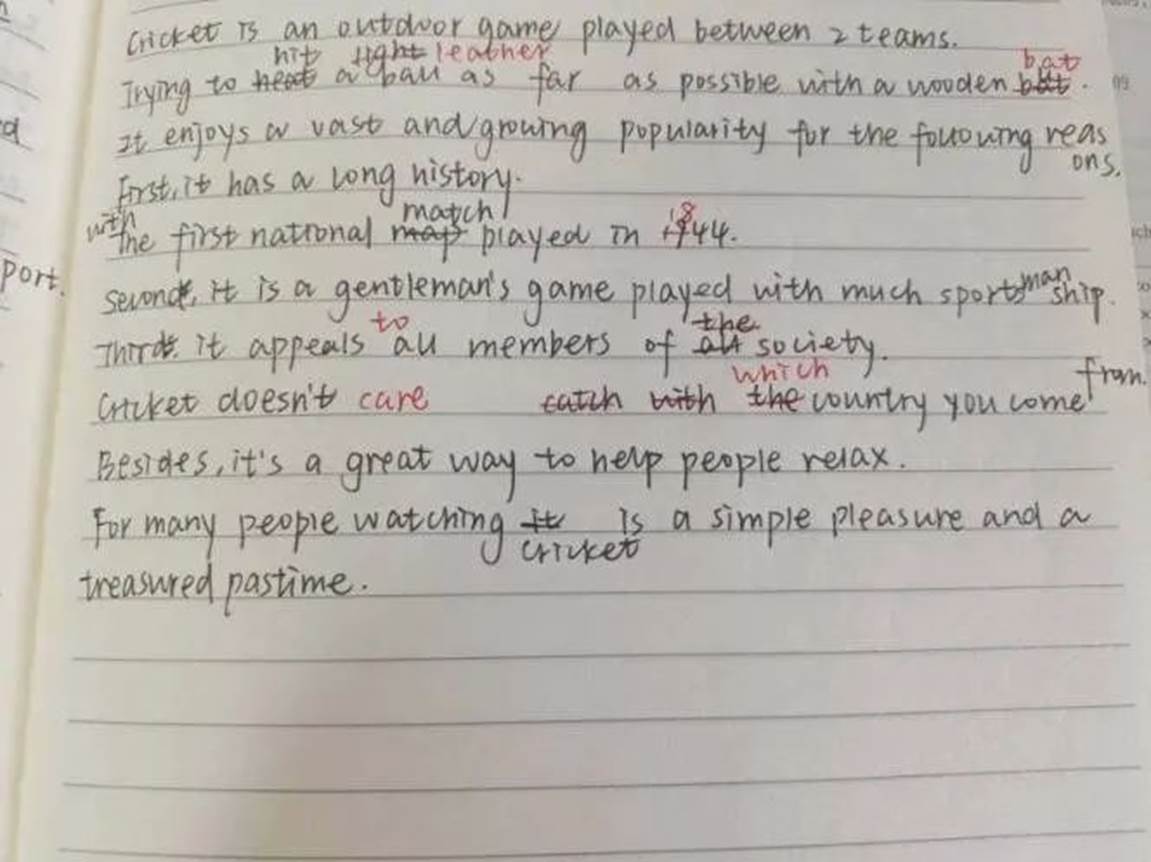 Cricket is an outdoor game played between 2 teams.
hit light leather bat
Trying to heat a ball as far as possible with a wooden but.
It enjoys a vast and growing popularity for the following reas
ons.
First, it has a long history.
with match 18
The first national map played in 1944.
port.
Second, it is a gentleman's game played with much sportsmanship.
to the
Third. it appeals all members of all society.
which from.
Cricket doesn't care catch with the country you come
Besides, it's a great way to help people relax.
For many people watching it is a simple pleasure and a
cricket
treasured pastime.